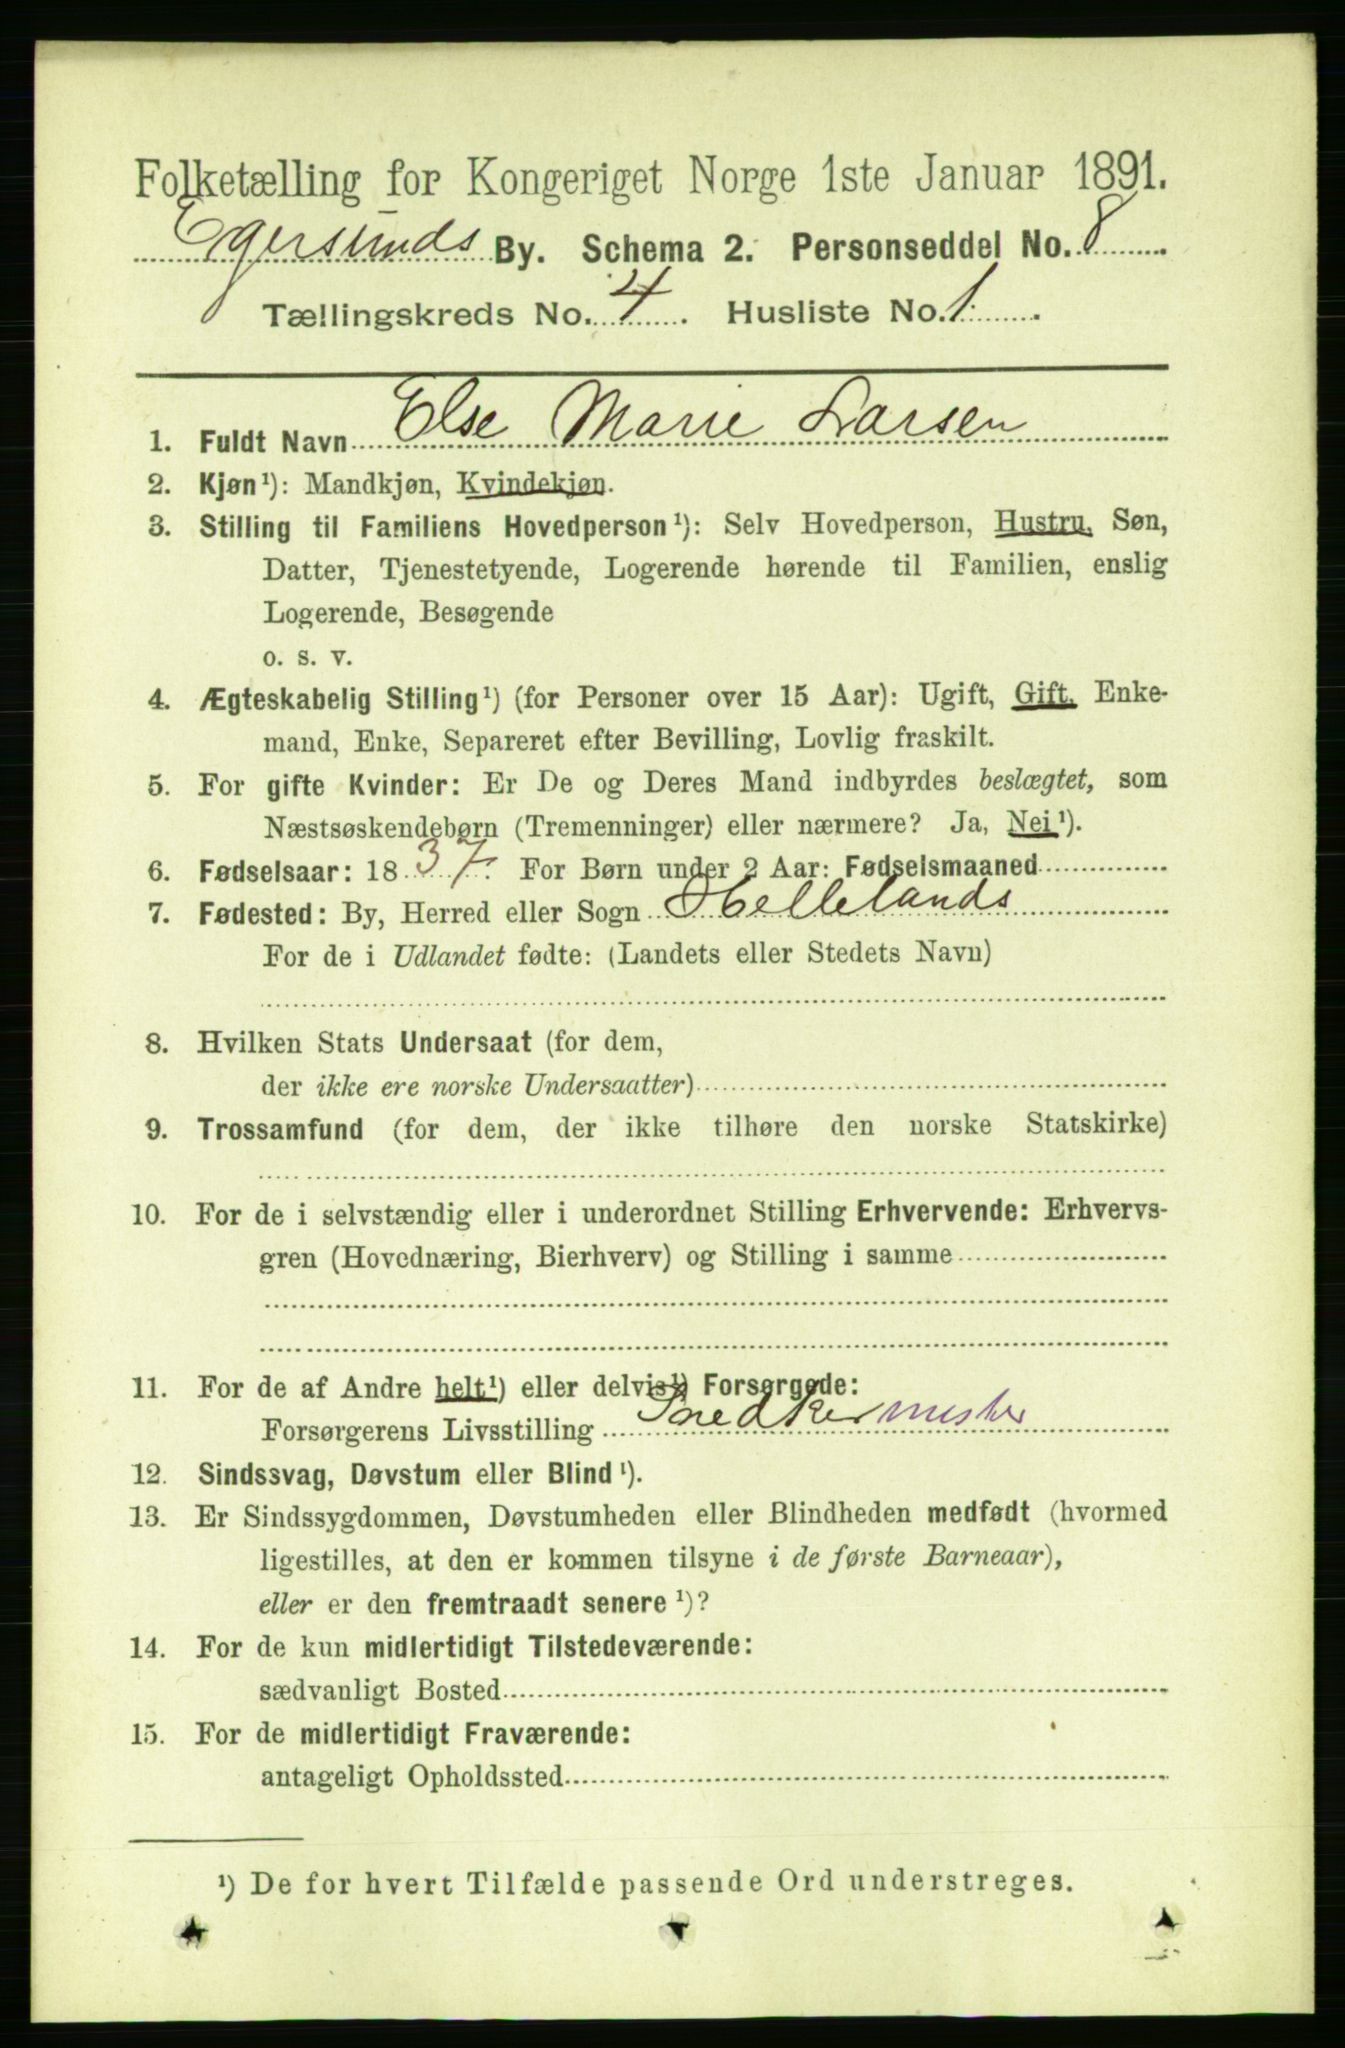 Folketælling for Kongeriget Norge 1ste Januar 1891.
Egersunds By. Schema 2. Personseddel No. 8
Tællingskreds No. 4. Husliste No. 1.
1. Fuldt Navn Else Marie Larsen
2. Kjøn¹): Mandkjøn, Kvindekjøn.
3. Stilling til Familiens Hovedperson¹): Selv Hovedperson, Hustru, Søn,
Datter, Tjenestetyende, Logerende hørende til Familien, enslig
Logerende, Besøgende
o. s. v.
4. Ægteskabelig Stilling¹) (for Personer over 15 Aar): Ugift, Gift, Enke-
mand, Enke, Separeret efter Bevilling, Lovlig fraskilt.
5. For gifte Kvinder: Er De og Deres Mand indbyrdes beslægtet, som
Næstsøskendebørn (Tremenninger) eller nærmere? Ja, Nei¹).
6. Fødselsaar: 1837. For Børn under 2 Aar: Fødselsmaaned
7. Fødested: By, Herred eller Sogn Hellelands
For de i Udlandet fødte: (Landets eller Stedets Navn)
8. Hvilken Stats Undersaat (for dem,
der ikke ere norske Undersaatter)
9. Trossamfund (for dem, der ikke tilhøre den norske Statskirke)
10. For de i selvstændig eller i underordnet Stilling Erhvervende: Erhvervs-
gren (Hovednæring, Bierhverv) og Stilling i samme
11. For de af Andre helt¹) eller delvis¹) Forsørgede:
Forsørgerens Livsstilling Snedkermester
12. Sindssvag, Døvstum eller Blind¹).
13. Er Sindssygdommen, Døvstumheden eller Blindheden medfødt (hvormed
ligestilles, at den er kommen tilsyne i de første Barneaar),
eller er den fremtraadt senere¹)?
14. For de kun midlertidigt Tilstedeværende:
sædvanligt Bosted
15. For de midlertidigt Fraværende:
antageligt Opholdssted
¹) De for hvert Tilfælde passende Ord understreges.